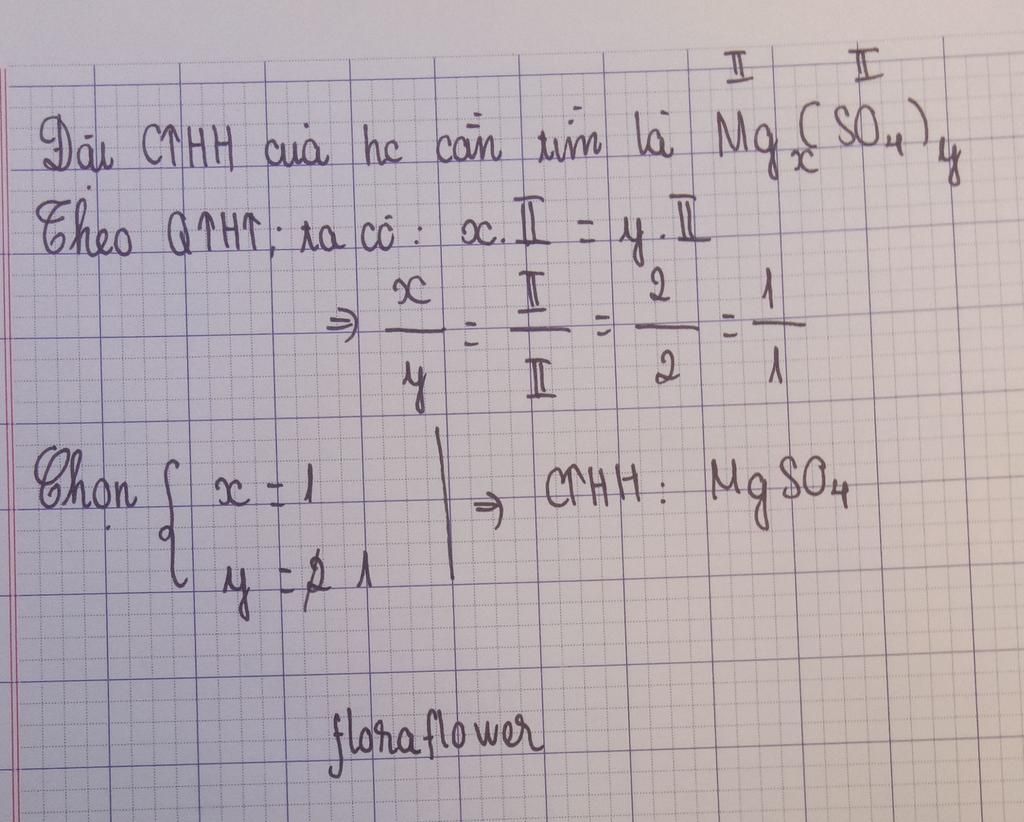 Đặt CTHH của hc cần tìm là Mgₓ(SO₄)ᵧ
II II
Theo QTHT; ta có: x.II = y.II
⇒ x/y = II/II = 2/2 = 1/1
Chọn { x = 1
y = 2 1
⇒ CTHH: MgSO₄
floraflower